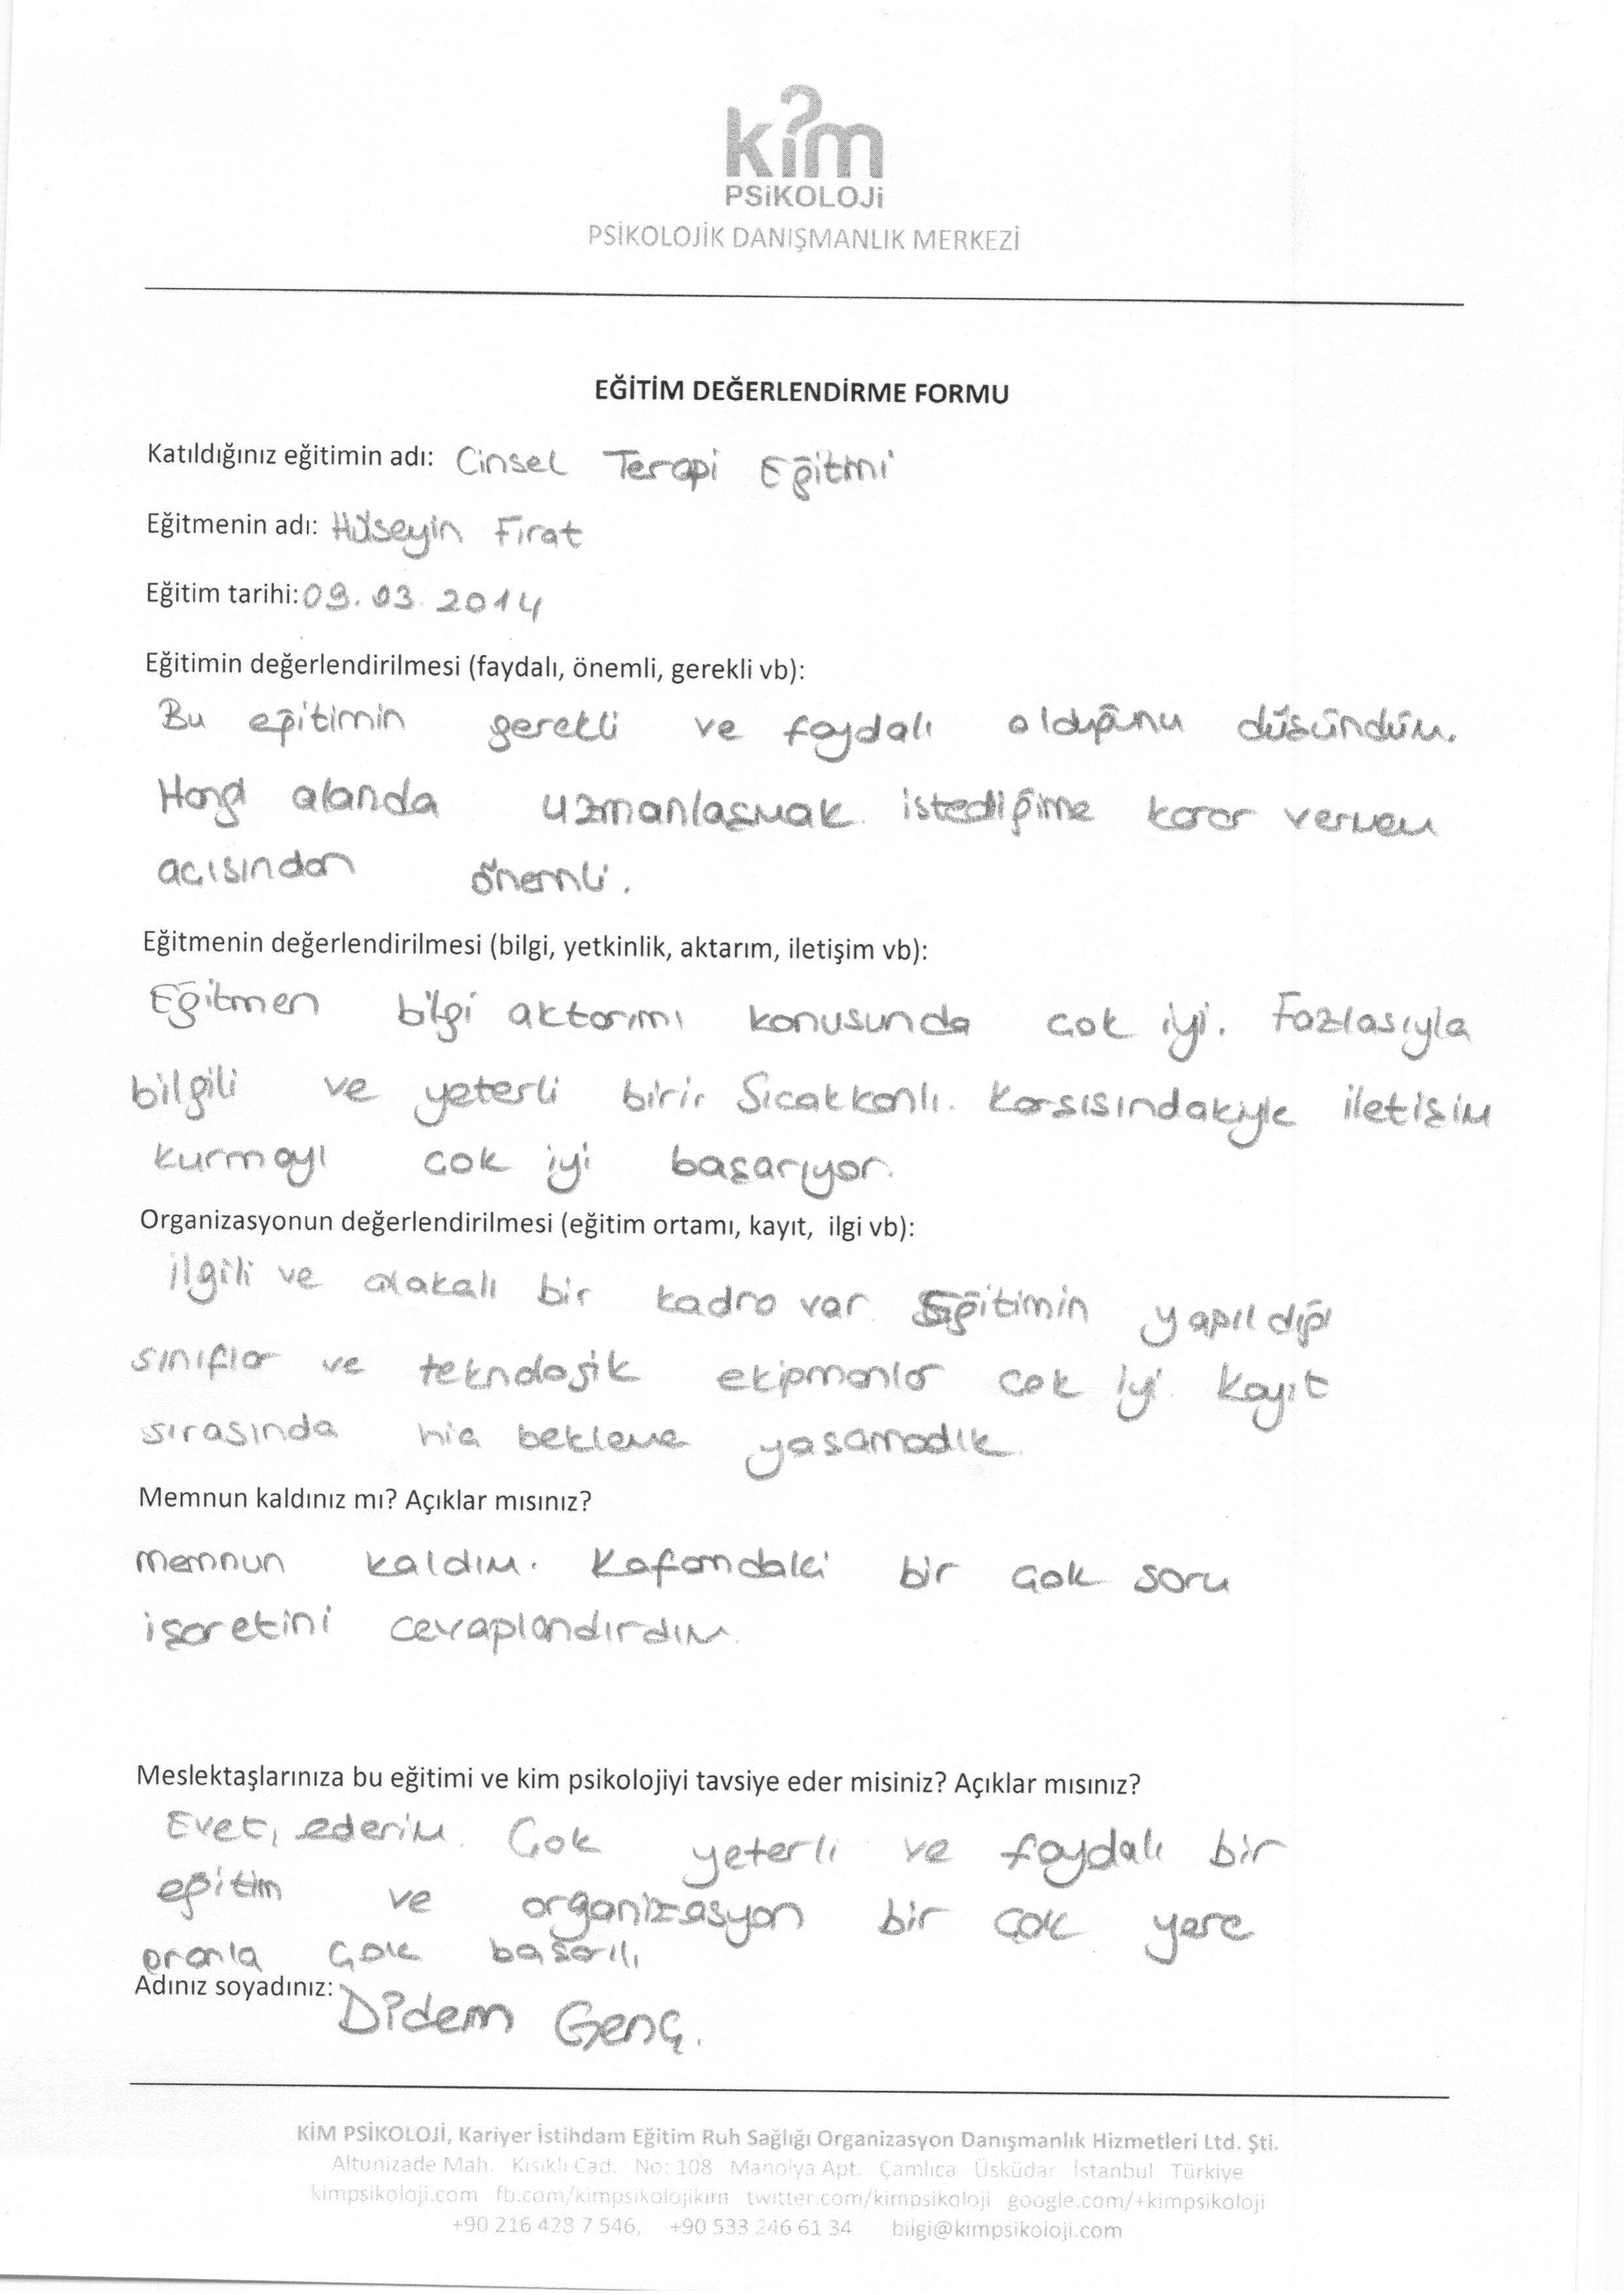 kim
PSiKOLOJi
PSİKOLOJİK DANIŞMANLIK MERKEZİ
EĞİTİM DEĞERLENDİRME FORMU
Katıldığınız eğitimin adı: Cinsel Terapi Eğitmi
Eğitmenin adı: Hüseyin Fırat
Eğitim tarihi: 09.03.2014
Eğitimin değerlendirilmesi (faydalı, önemli, gerekli vb):
Bu eğitimin gerekli ve faydalı olduğunu düşündüm.
Hangi alanda uzmanlaşmak istediğime karar vermem
açısından önemli.
Eğitmenin değerlendirilmesi (bilgi, yetkinlik, aktarım, iletişim vb):
Eğitmen bilgi aktarımı konusunda çok iyi. Fazlasıyla
bilgili ve yeterli biri. Sıcakkanlı. Karşısındakiyle iletişim
kurmayı çok iyi başarıyor.
Organizasyonun değerlendirilmesi (eğitim ortamı, kayıt, ilgi vb):
ilgili ve alakalı bir kadro var. Eğitimin yapıldığı
sınıflar ve teknolojik ekipmanlar çok iyi. Kayıt
sırasında hiç bekleme yaşamadık.
Memnun kaldınız mı? Açıklar mısınız?
Memnun kaldım. Kafamdaki bir çok soru
işaretini cevaplandırdım.
Meslektaşlarınıza bu eğitimi ve kim psikolojiyi tavsiye eder misiniz? Açıklar mısınız?
Evet, ederim. Çok yeterli ve faydalı bir
eğitim ve organizasyon bir çok yere
oranla çok başarılı
Adınız soyadınız: Didem Genç.
KİM PSİKOLOJİ, Kariyer İstihdam Eğitim Ruh Sağlığı Organizasyon Danışmanlık Hizmetleri Ltd. Şti.
Altunizade Mah. Kısıklı Cad. No: 108 Manolya Apt. Çamlıca Üsküdar İstanbul Türkiye
kimpsikoloji.com fb.com/kimpsikolojikim twitter.com/kimpsikoloji google.com/+kimpsikoloji
+90 216 428 7 546, +90 533 246 61 34 bilgi@kimpsikoloji.com